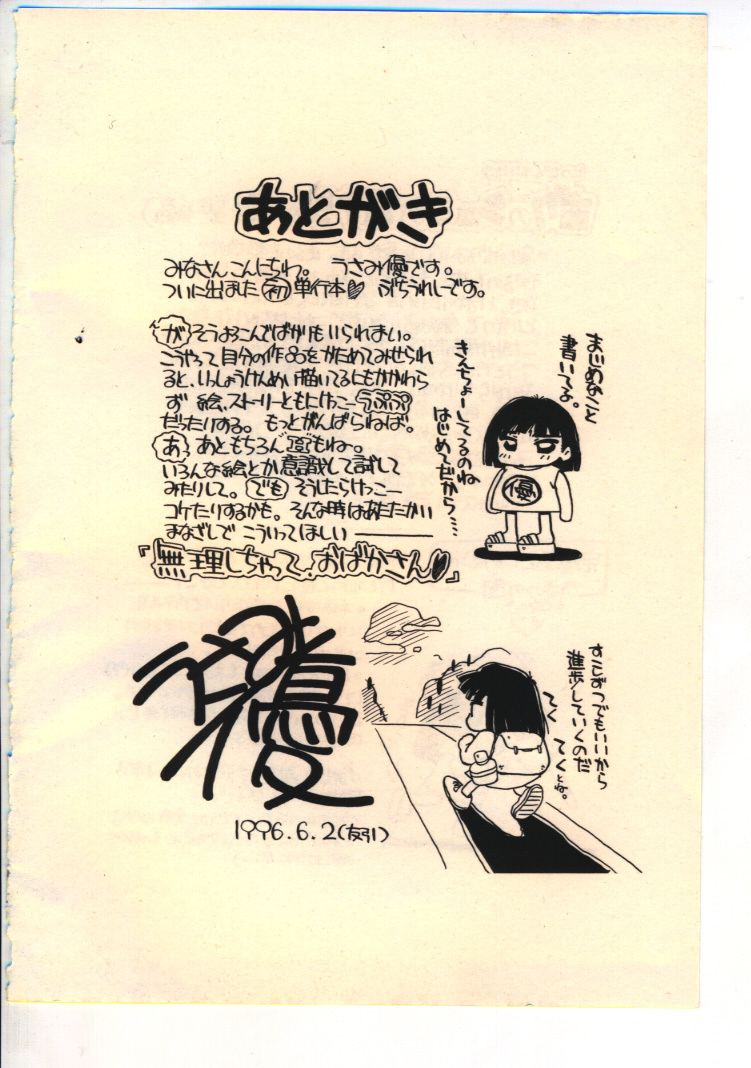 あとがき
みなさんこんにちわ。 うさみ優です。
ついに出ました 初 単行本♥ ぷちうれしーです。
が そうよろこんでばかりもいられまい。
こうやって自分の作品をかためてみせられ
ると、いっしょうけんめい描いてるにもかかわら
ず 絵、ストーリーともにけっこーうぷぷ
だったりする。 もっとがんばらねば。
あ、あともちろん 頁もね。
いろんな絵とか意識して試して
みたりして。 でも そうしたらけっこー
コケたりするかも。 そんな時はあたたかい
まなざしで こういってほしい ――――
『無理しちゃって、おばかさん♥』
まじめなこと
書いてるよ。
きんちょーしてるのね
はじめてだから……
優
うさみ優
1996.6.2(友引)
すこしずつでもいいから
進歩していくのだ
てく
てくとね。